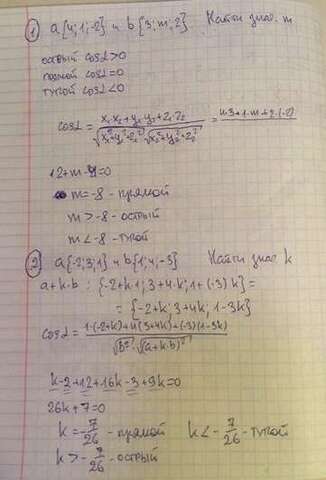 ① a{4;1;-2} и b{3;m;2} Найти знач. m
острый cosα>0
прямой cosα=0
тупой cosα<0
cosα = x₁x₂+y₁y₂+z₁z₂ / √x₁²+y₁²+z₁² √x₂²+y₂²+z₂² = 4·3+1·m+2·(-2)
12+m-4=0
m=-8 - прямой
m>-8 - острый
m<-8 - тупой
② a{-2;3;1} и b{1;4;-3} Найти знач k
a+k·b : {-2+k·1; 3+4·k; 1+(-3)·k} =
= {-2+k; 3+4k; 1-3k}
cosα = 1·(-2+k)+4(3+4k)+(-3)(1-3k) / √b² · √(a+k·b)²
k-2+12+16k-3+9k=0
26k+7=0
k=-7/26 - прямой k<-7/26 - тупой
k>-7/26 - острый